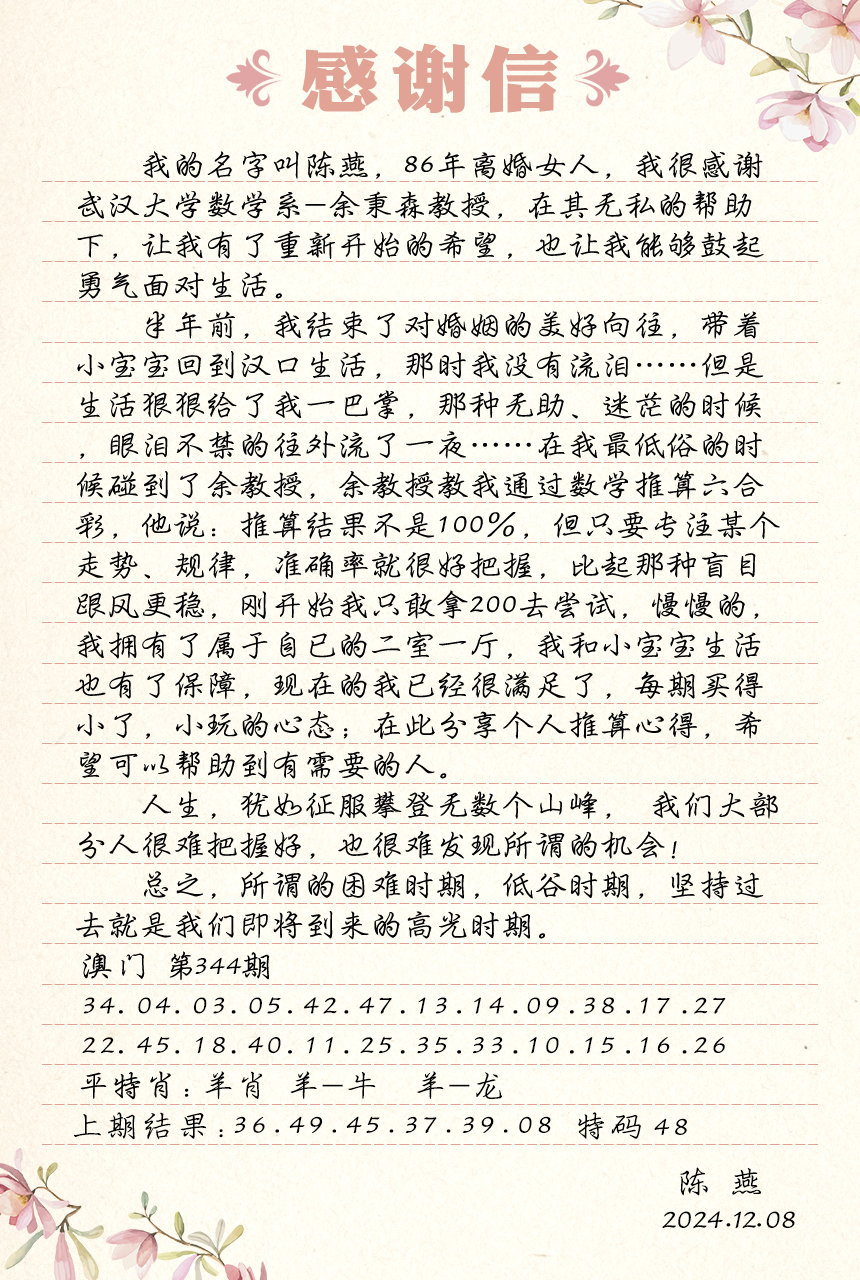 感谢信
我的名字叫陈燕，86年离婚女人，我很感谢
武汉大学数学系—余秉森教授，在其无私的帮助
下，让我有了重新开始的希望，也让我能够鼓起
勇气面对生活。
半年前，我结束了对婚姻的美好向往，带着
小宝宝回到汉口生活，那时我没有流泪……但是
生活狠狠给了我一巴掌，那种无助、迷茫的时候
，眼泪不禁的往外流了一夜……在我最低俗的时
候碰到了余教授，余教授教我通过数学推算六合
彩，他说：推算结果不是100%，但只要专注某个
走势、规律，准确率就很好把握，比起那种盲目
跟风更稳，刚开始我只敢拿200去尝试，慢慢的，
我拥有了属于自已的二室一厅，我和小宝宝生活
也有了保障，现在的我已经很满足了，每期买得
小了，小玩的心态；在此分享个人推算心得，希
望可以帮助到有需要的人。
人生，犹如征服攀登无数个山峰， 我们大部
分人很难把握好，也很难发现所谓的机会！
总之，所谓的困难时期，低谷时期，坚持过
去就是我们即将到来的高光时期。
澳门 第344期
34.04.03.05.42.47.13.14.09.38.17.27
22.45.18.40.11.25.35.33.10.15.16.26
平特肖：羊肖 羊—牛 羊—龙
上期结果：36.49.45.37.39.08 特码 48
陈 燕
2024.12.08